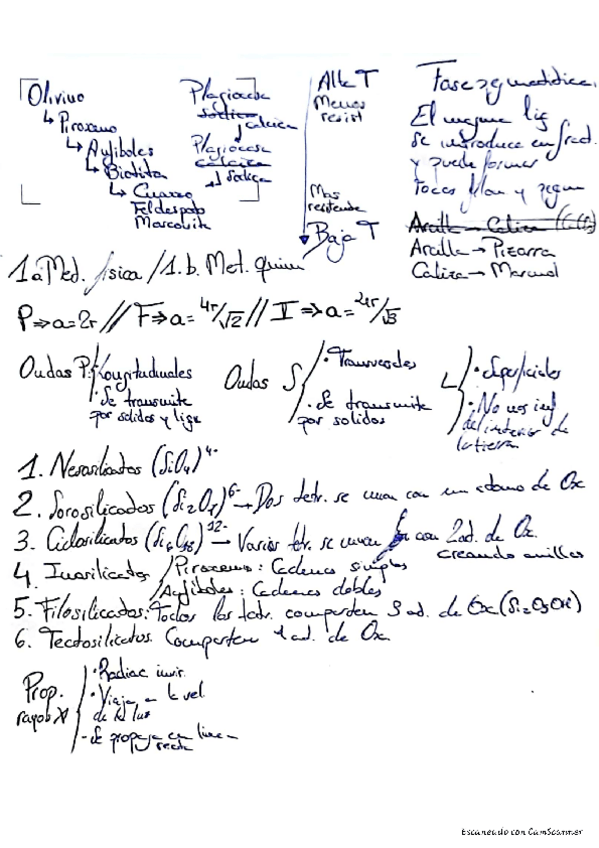 Olivino
↳ Piroxeno
↳ Anfiboles
↳ Biotita
↳ Cuarzo
Feldespato
Moscovita
Plagioclasa
sódica
cálcica
Plagioclasa
cálcica
sódica
Alta T
Menos
resist
Mas
resistente
Baja T
Fase
El magma liq
se introduce en fract.
y puede formar
rocas filon y pegm
Arcilla → Caliza
Arcilla → Pizarra
Caliza → Marmol
1a Met. física / 1.b. Met. quim
P⇒a=2r // F⇒a=4r/√2 // I⇒a=4r/√3
Ondas P: Longitudinales
· Se transmite
por solidos y liq
Ondas S
· Transversales
· Se transmite
por solidos
L
· Superficiales
· No nos inf
del interior de
la tierra
1. Nesosilicatos (SiO4)4-
2. Sorosilicatos (Si2O7)6- → Dos tetr. se unen con un atomo de Ox
3. Ciclosilicatos (Si6O18)12- → Varios tetr. se unen con 2 at. de Ox.
creando anillos
4. Inosilicatos
Piroxenos: Cadenas simples
Anfiboles: Cadenas dobles
5. Filosilicatos: Todos los tetr. comparten 3 at. de Ox
6. Tectosilicatos. Comparten 4 at. de Ox
Prop.
rayos X
· Radiac invis.
· Viaja a la vel
de la luz
- Se propaga en linea
recta
Escaneado con CamScanner